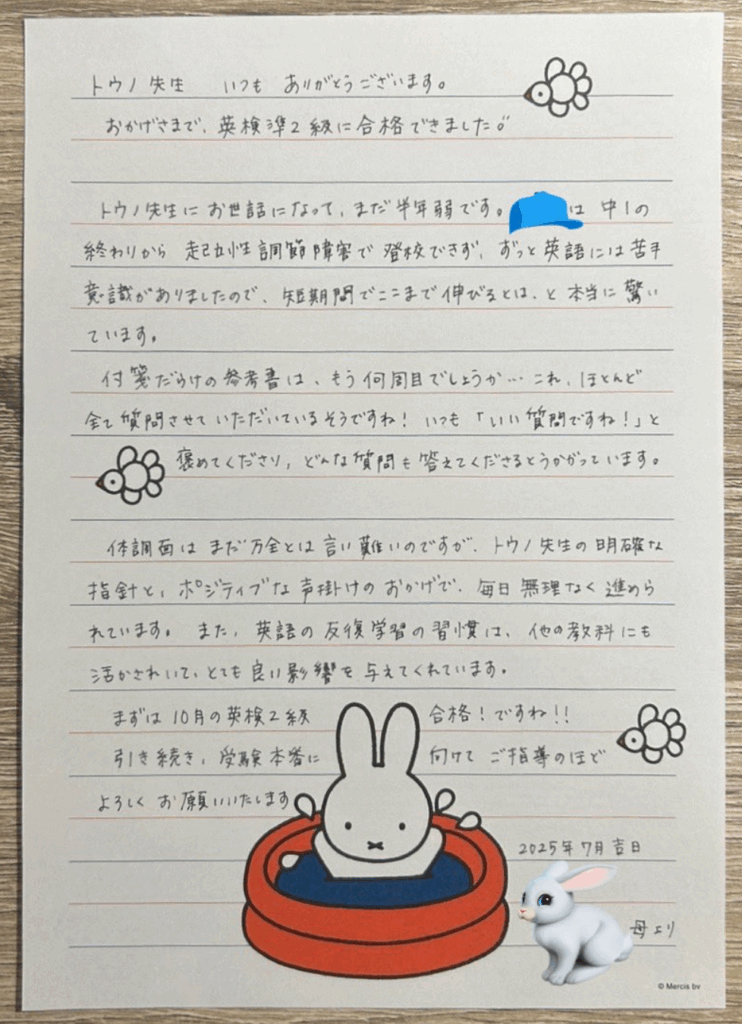 トウノ先生　いつも ありがとうございます。
おかげさまで、英検準2級に合格できました。"
トウノ先生にお世話になって、まだ半年弱です。は 中1の
終わりから 起立性調節障害で 登校できず、ずっと英語には苦手
意識がありましたので、短期間でここまで伸びるとは、と本当に驚い
ています。
付箋だらけの参考書は、もう何周目でしょうか… これ、ほとんど
全て質問させていただいているそうですね！ いつも「いい質問ですね！」と
褒めてくださり、どんな質問も答えてくださるとうかがっています。
体調面は まだ万全とは言い難いのですが、トウノ先生の明確な
指針と、ポジティブな声掛けのおかげで、毎日無理なく進めら
れています。また、英語の反復学習の習慣は、他の教科にも
活かされいて、とても良い影響を与えてくれています。
まずは10月の英検2級 合格！ですね!!
引き続き、受験本番に 向けて ご指導のほど
よろしくお願いいたします
2025年7月吉日
母より
© Mercis bv